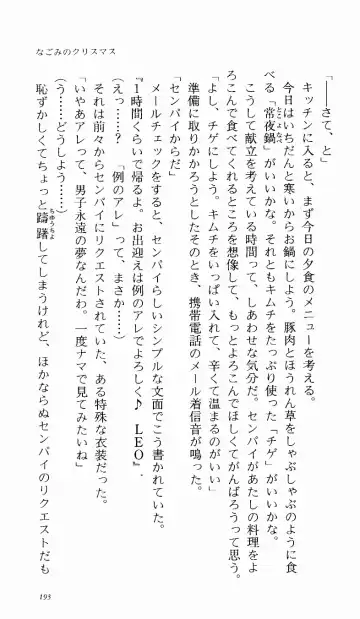 なごみのクリスマス
「――さて、と」
キッチンに入ると、まず今日の夕食のメニューを考える。
今日はいちだんと寒いからお鍋にしよう。豚肉とほうれん草をしゃぶしゃぶのように食
べる「常夜鍋」がいいかな。それともキムチをたっぷり使った「チゲ」がいいかな。
こうして献立を考えている時間って、しあわせな気分だ。センパイがあたしの料理をよ
ろこんで食べてくれるところを想像して、もっとよろこんでほしくてがんばろうって思う。
「よし、チゲにしよう。キムチをいっぱい入れて、辛くて温まるのがいい」
準備に取りかかろうとしたそのとき、携帯電話のメール着信音が鳴った。
「センパイからだ」
メールチェックをすると、センパイらしいシンプルな文面でこう書かれていた。
『1時間くらいで帰るよ。お出迎えは例のアレでよろしく♪ LEO』
(えっ……?「例のアレ」って、まさか……)
それは前々からセンパイにリクエストされていた、ある特殊な衣装だった。
「いやあアレって、男子永遠の夢なんだわ。一度ナマで見てみたいね」
(う……どうしよう……)
恥ずかしくてちょっと躊躇してしまうけれど、ほかならぬセンパイのリクエストだも
193